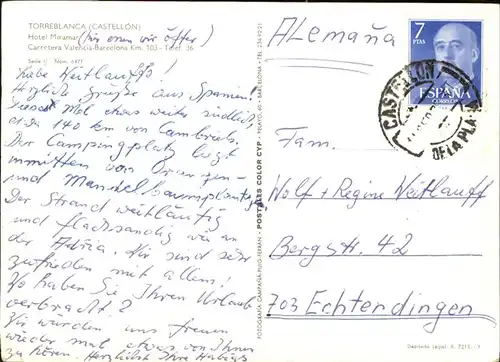 TORREBLANCA (CASTELLÓN)
Hotel Miramar (hier essen wir öfter)
Carretera Valencia-Barcelona Km. 103 - Telef. 36
Serie Núm. 6477
Liebe Weitlauffs!
Herzliche Grüße aus Spanien!
Dieses Mal etwas weiter südlich,
etwa 140 km von Cambrils.
Der Campingplatz liegt
inmitten von Orangen-
und Mandelbaumplantagen
Der Strand weitläufig
und flachsandig wie an
der Adria. Wir sind sehr
zufrieden mit allem!
Wo haben Sie Ihren Urlaub
verbracht?
Wir würden uns freuen
wieder mal etwas von Ihnen
zu hören. Herzlichst Ihre
FOTOGRAFÍA CAMPAÑÁ-PUIG-FERRÁN - POSTALES COLOR CYP - PELAYO, BARCELONA - TEL. 2349221
Alemaña
7
PTAS
ESPAÑA
CORREOS
CASTELLON
DE LA PLANA
Fam.
Wolf + Regine Weitlauff
Bergstr. 42
703 Echterdingen
Depósito Legal B. 7215